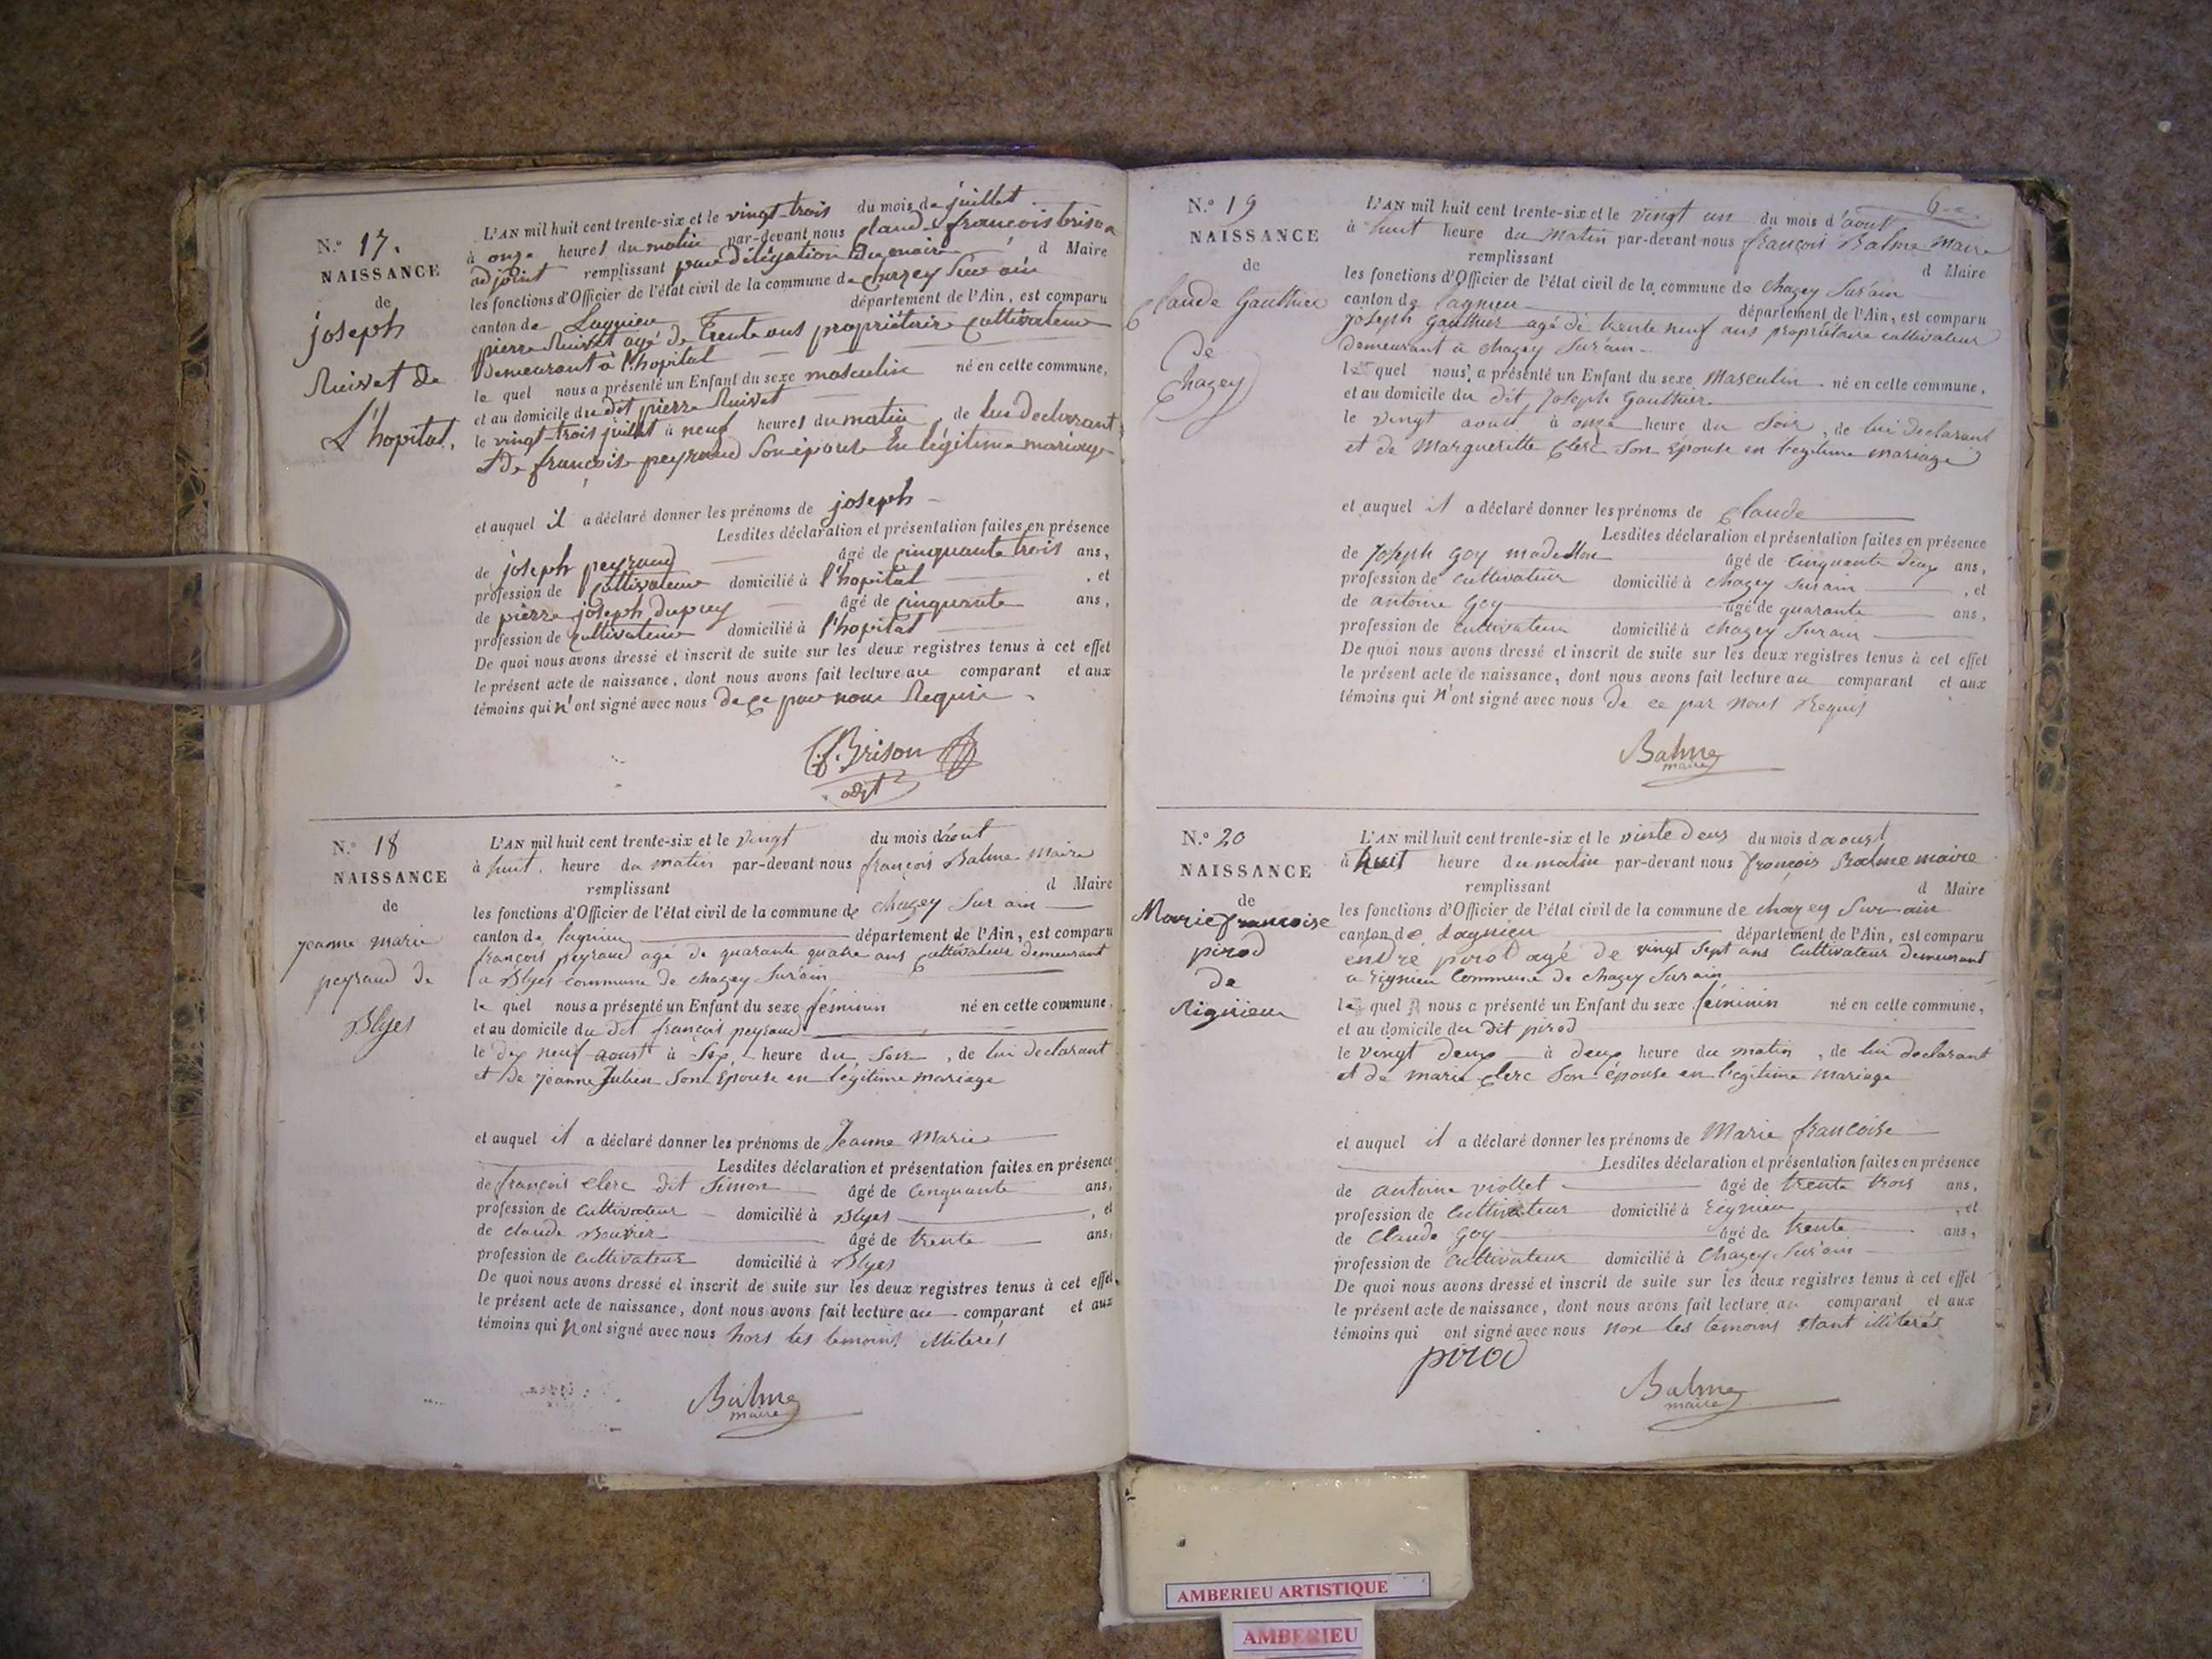 N.o 17.
NAISSANCE
de
joseph
Ruivet de
L'hopital.
L'AN mil huit cent trente-six et le vingt-trois du mois de juillet
à onze heures du matin par-devant nous claude françois brison
adjoint remplissant par délégation du maire d Maire
les fonctions d'Officier de l'état civil de la commune de chazey sur ain
canton de Lagnieu département de l'Ain, est comparu
pierre Ruivet agé de trente ans propriétaire cultivateur
demeurant à l'hopital
le quel nous a présenté un Enfant du sexe masculin né en cette commune,
et au domicile du dit pierre Ruivet
le vingt-trois juillet à neuf heures du matin, de lui declarant
et de françoise peyraud son épouse en légitime mariage
et auquel il a déclaré donner les prénoms de joseph
Lesdites déclaration et présentation faites en présence
de joseph peyraud âgé de cinquante trois ans,
profession de cultivateur domicilié à l'hopital, et
de pierre joseph dupuy âgé de cinquante ans,
profession de cultivateur domicilié à l'hopital
De quoi nous avons dressé et inscrit de suite sur les deux registres tenus à cet effet
le présent acte de naissance, dont nous avons fait lecture au comparant et aux
témoins qui n'ont signé avec nous de ce par nous Requis.
C.f. Brison
adjt
N.o 18
NAISSANCE
de
jeanne marie
peyraud de
Blyes
L'AN mil huit cent trente-six et le vingt du mois d'aout
à huit heure du matin par-devant nous françois Balme Maire
remplissant d Maire
les fonctions d'Officier de l'état civil de la commune de chazey sur ain
canton de lagnieu département de l'Ain, est comparu
françois peyraud agé de quarante quatre ans cultivateur demeurant
a Blyes commune de chazey sur'ain
le quel nous a présenté un Enfant du sexe féminin né en cette commune,
et au domicile du dit françois peyraud
le dix neuf aoust à six heure du soir, de lui declarant
et de jeanne Julien son Épouse en légitime mariage
et auquel il a déclaré donner les prénoms de Jeanne Marie
Lesdites déclaration et présentation faites en présence
de françois clerc dit Simon âgé de cinquante ans,
profession de cultivateur domicilié à Blyes, et
de claude Bouvier âgé de trente ans,
profession de cultivateur domicilié à Blyes
De quoi nous avons dressé et inscrit de suite sur les deux registres tenus à cet effet
le présent acte de naissance, dont nous avons fait lecture au comparant et aux
témoins qui n'ont signé avec nous hors les temoins illiterés
Balme
maire
6
N.o 19
NAISSANCE
de
Claude Gauthier
de
Chazey
L'AN mil huit cent trente-six et le vingt un du mois d'aout
à huit heure du matin par-devant nous françois Balme Maire
remplissant d Maire
les fonctions d'Officier de l'état civil de la commune de Chazey sur'ain
canton de lagnieu département de l'Ain, est comparu
Joseph Gauthier agé de trente neuf ans propriétaire cultivateur
demeurant à chazey sur'ain
le quel nous a présenté un Enfant du sexe Masculin né en cette commune,
et au domicile du dit Joseph Gauthier
le vingt aout à onze heure du soir, de lui declarant
et de Margueritte Clerc son Épouse en légitime mariage
et auquel il a déclaré donner les prénoms de Claude
Lesdites déclaration et présentation faites en présence
de Joseph Goy âgé de cinquante deux ans,
profession de cultivateur domicilié à chazey sur ain, et
de antoine Goy âgé de quarante ans,
profession de cultivateur domicilié à chazey sur ain
De quoi nous avons dressé et inscrit de suite sur les deux registres tenus à cet effet
le présent acte de naissance, dont nous avons fait lecture au comparant et aux
témoins qui n'ont signé avec nous de ce par nous Requis
Balme
maire
N.o 20
NAISSANCE
de
Marie francoise
pirod
de
Rignieu
L'AN mil huit cent trente-six et le vinte deus du mois d aoust
à huit heure du matin par-devant nous françois Balme maire
remplissant d Maire
les fonctions d'Officier de l'état civil de la commune de chazey sur-ain
canton de Lagnieu département de l'Ain, est comparu
endré pirod agé de vingt sept ans Cultivateur demeurant
a rignieu Commune de chazey sur ain
le quel nous a présenté un Enfant du sexe féminin né en cette commune,
et au domicile du dit pirod
le vingt deux à deux heure du matin, de lui declarant
et de marie clerc son épouse en légitime mariage
et auquel il a déclaré donner les prénoms de Marie francoise
Lesdites déclaration et présentation faites en présence
de antoine viollet âgé de trente trois ans,
profession de cultivateur domicilié à Rignieu, et
de Claude Goy âgé de trente ans,
profession de cultivateur domicilié à Chazey sur'ain
De quoi nous avons dressé et inscrit de suite sur les deux registres tenus à cet effet
le présent acte de naissance, dont nous avons fait lecture au comparant et aux
témoins qui ont signé avec nous non les temoins etant illiterés
pirod
Balme
maire
AMBERIEU ARTISTIQUE
AMBERIEU